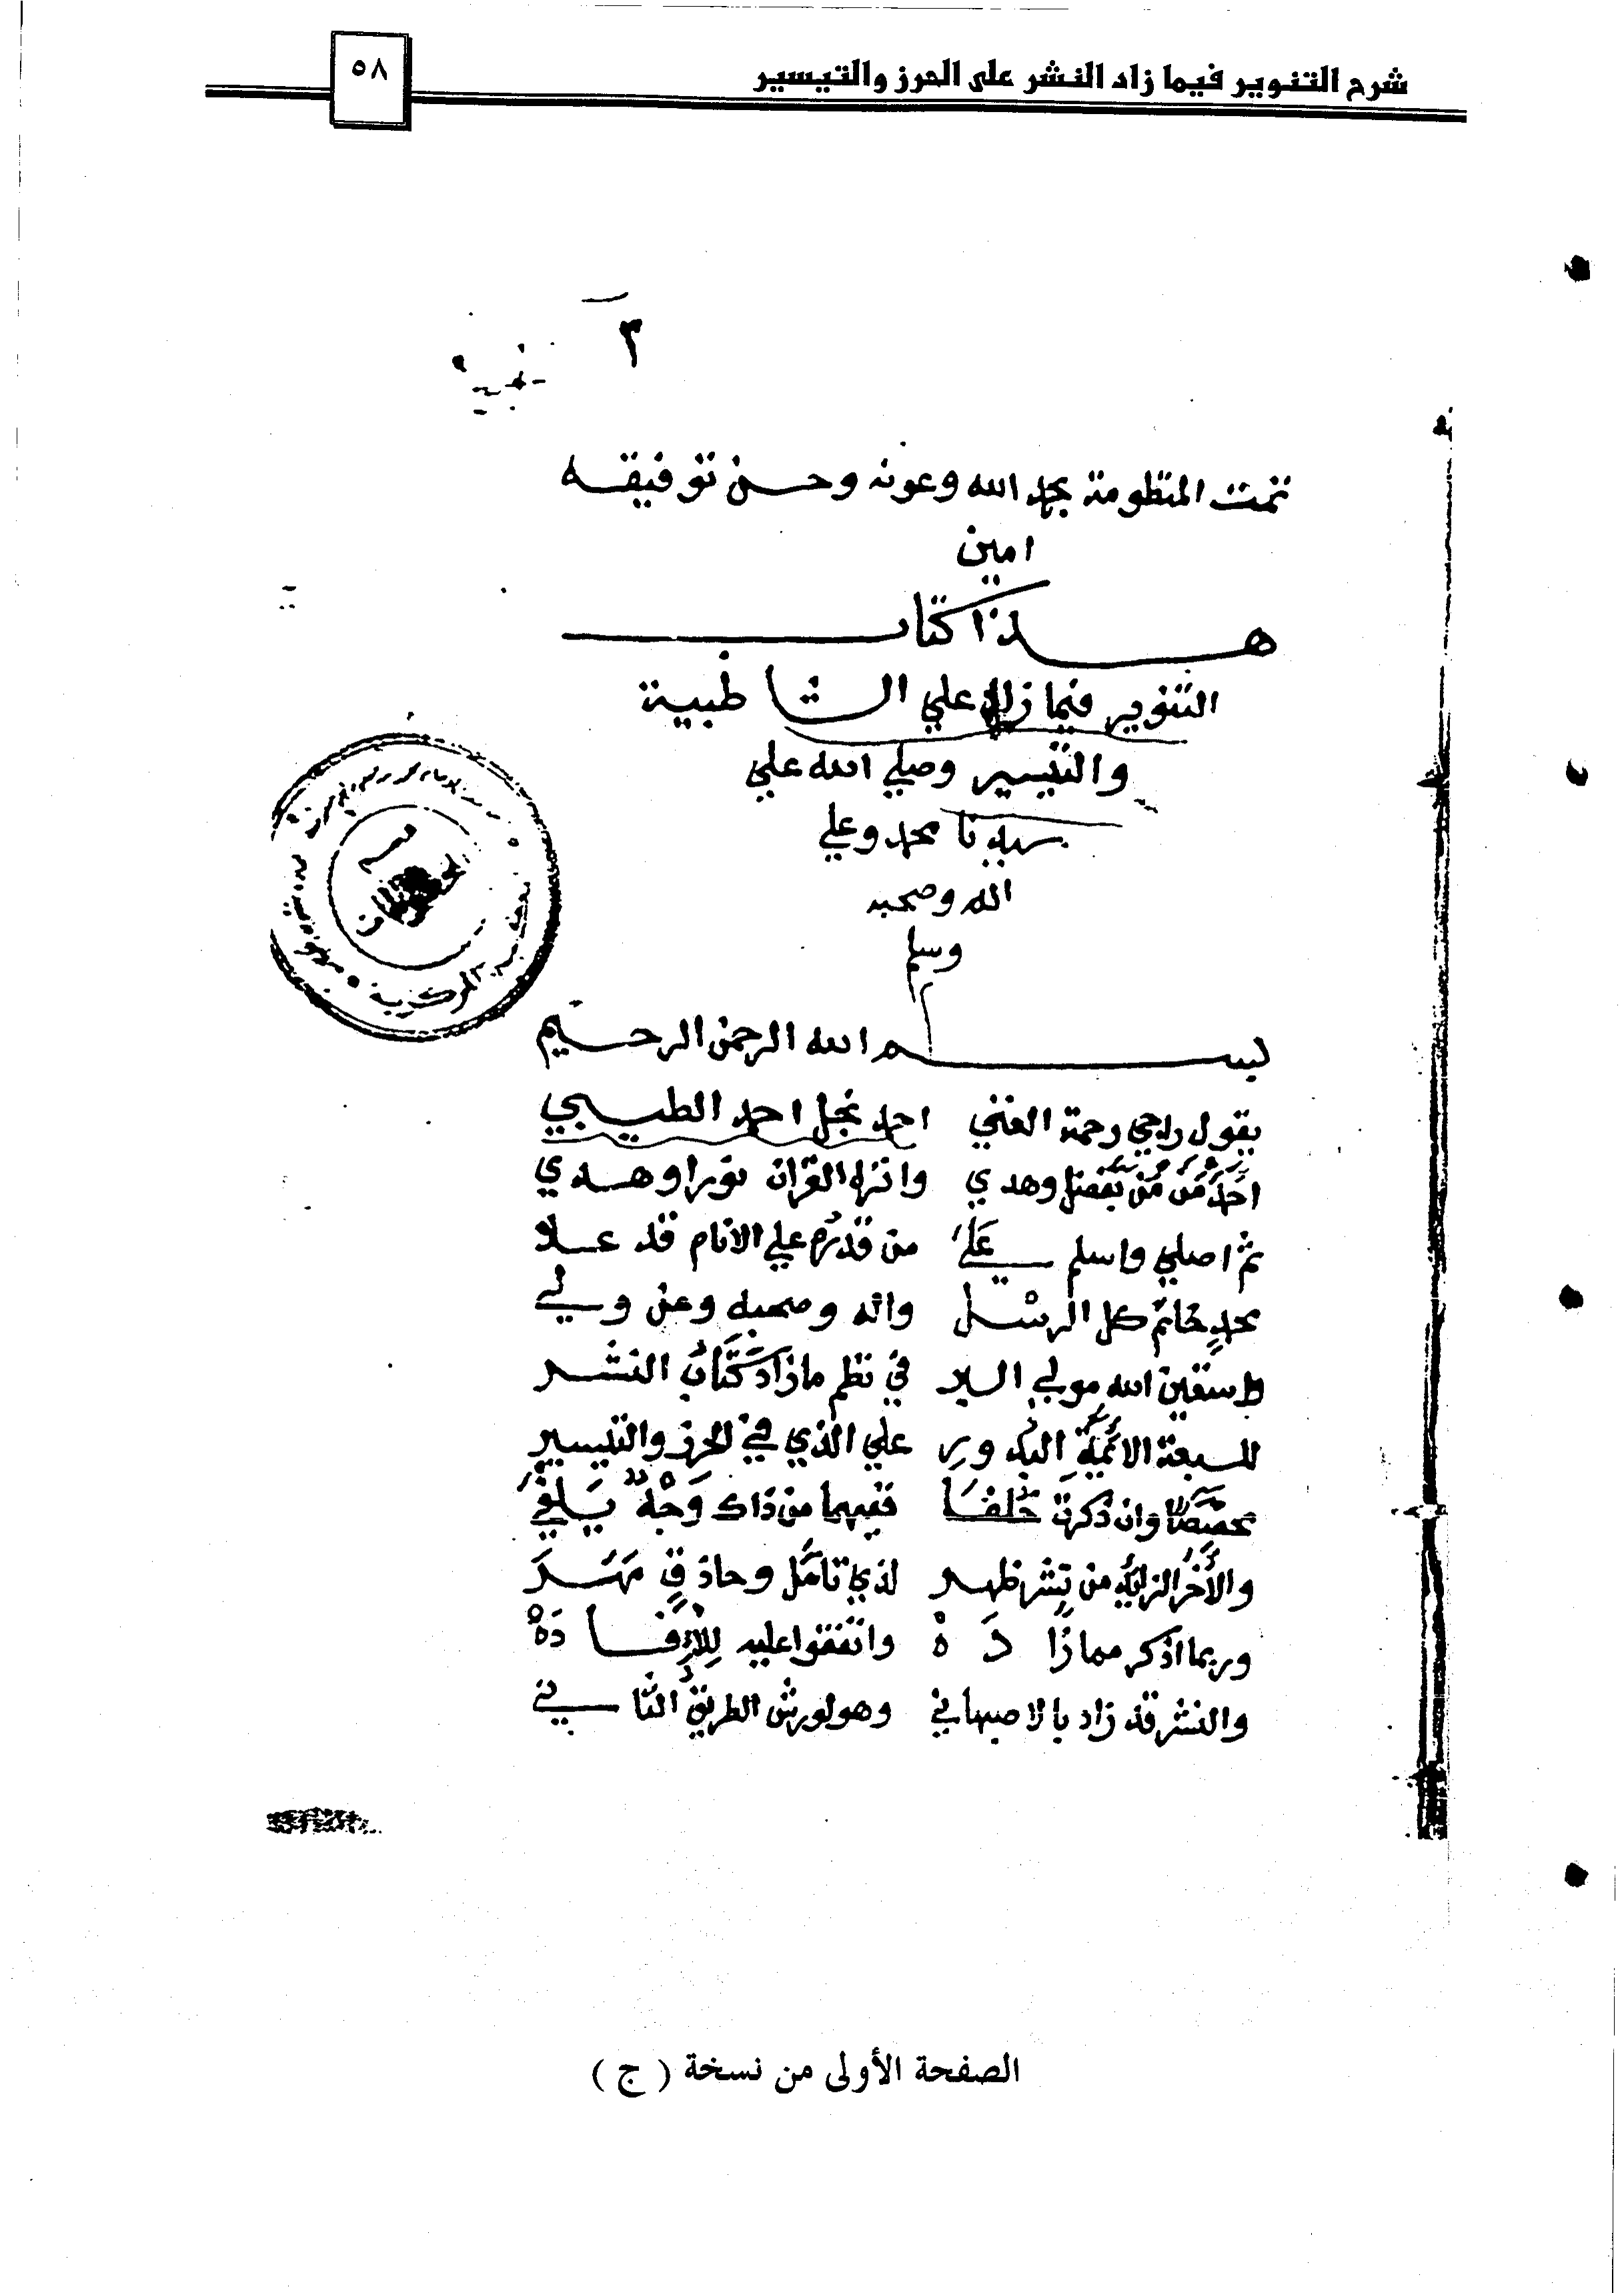 شرح التنوير فيما زاد النشر على الحرز والتيسير
٥٨
٣
تمت المنظومة بحمد الله وعونه وحسن توفيقه
امين
هذا كتاب
التنوير فيما زاد علي الشاطبية
والتيسير وصلي الله علي
سيدنا محمد وعلي
اله وصحبه
وسلم
بسم الله الرحمن الرحيم
يقول راجي رحمة الغني احمد نجل احمد الطيبي
احمد من من بفضل وهدي وانزل القرآن نورا وهدي
ثم اصلي واسلم علي من قدرهم علي الانام قد علا
محمدٍ خاتم كل الرسل واله وصحبه وعن ولي
واستعين الله مولي البر في نظم ما زاد كتاب النشر
للسبعة الائمة البدور علي الذي في الحرز والتيسير
مخصصا وان ذكرت خلفا ففيهما من ذاك وَجْهٌ يُلفي
والأخر الزائد من نشر ظهر لذي تامُّل وحاذقٍ مَهَرَ
وربما اذكر مما زادَهْ واتفقوا عليه لِلْاِفادَهْ
والنشر قد زاد بالاصبهاني وهو لورش الطريق الثاني
قسم
المركزية
الصفحة الأولى من نسخة ( ج )